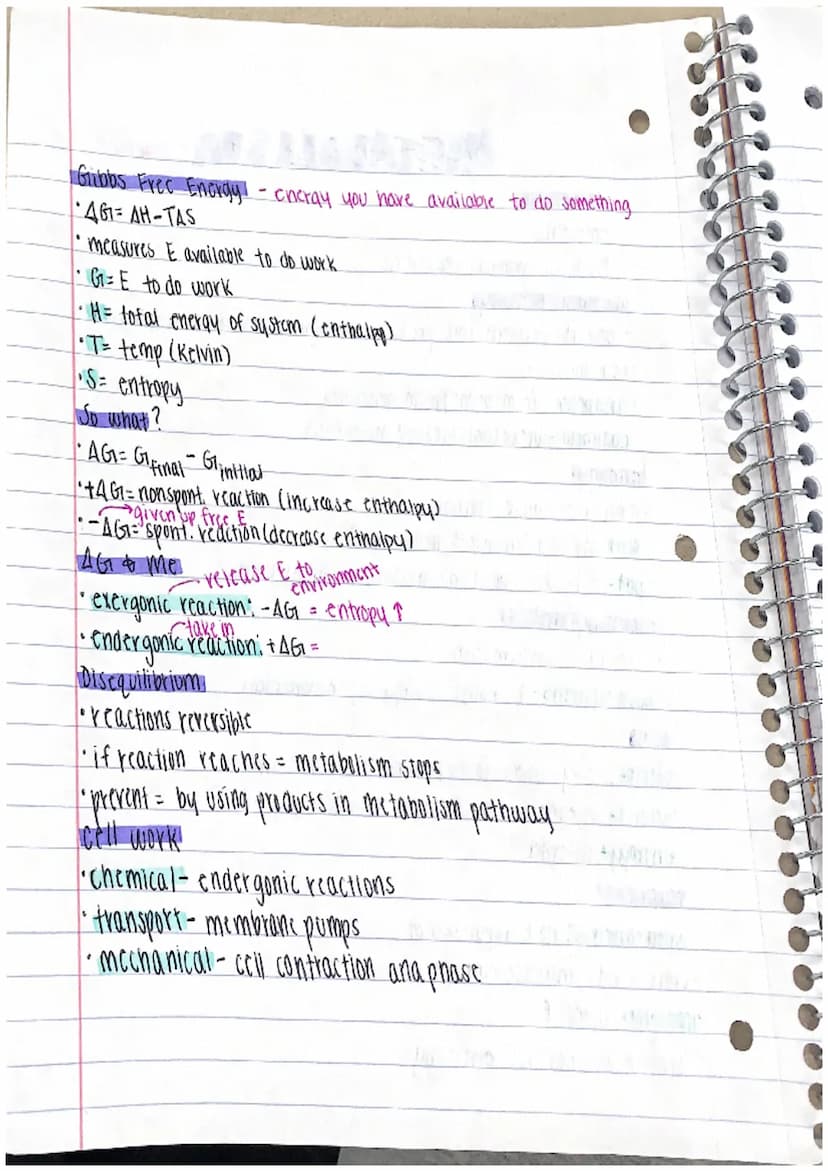 Gibbs Free Energy - energy you have available to do something
• ΔG = ΔH - TΔS
• measures E available to do work
• G = E to do work
• H = total energy of system (enthalpy)
• T = temp (Kelvin)
• S = entropy
So what?
• ΔG = Gfinal - Ginitial
• +ΔG = nonspont. reaction (increase enthalpy)
→ given up free E
• -ΔG = spont. reaction (decrease enthalpy)
ΔG & Me
release E to environment
• exergonic reaction: -ΔG = entropy ↑
take in
• endergonic reaction: +ΔG =
Disequilibrium
• reactions reversible
• if reaction reaches = metabolism stops
• prevent = by using products in metabolism pathway
Cell work
• chemical - endergonic reactions
• transport - membrane pumps
• mechanical - cell contraction anaphase